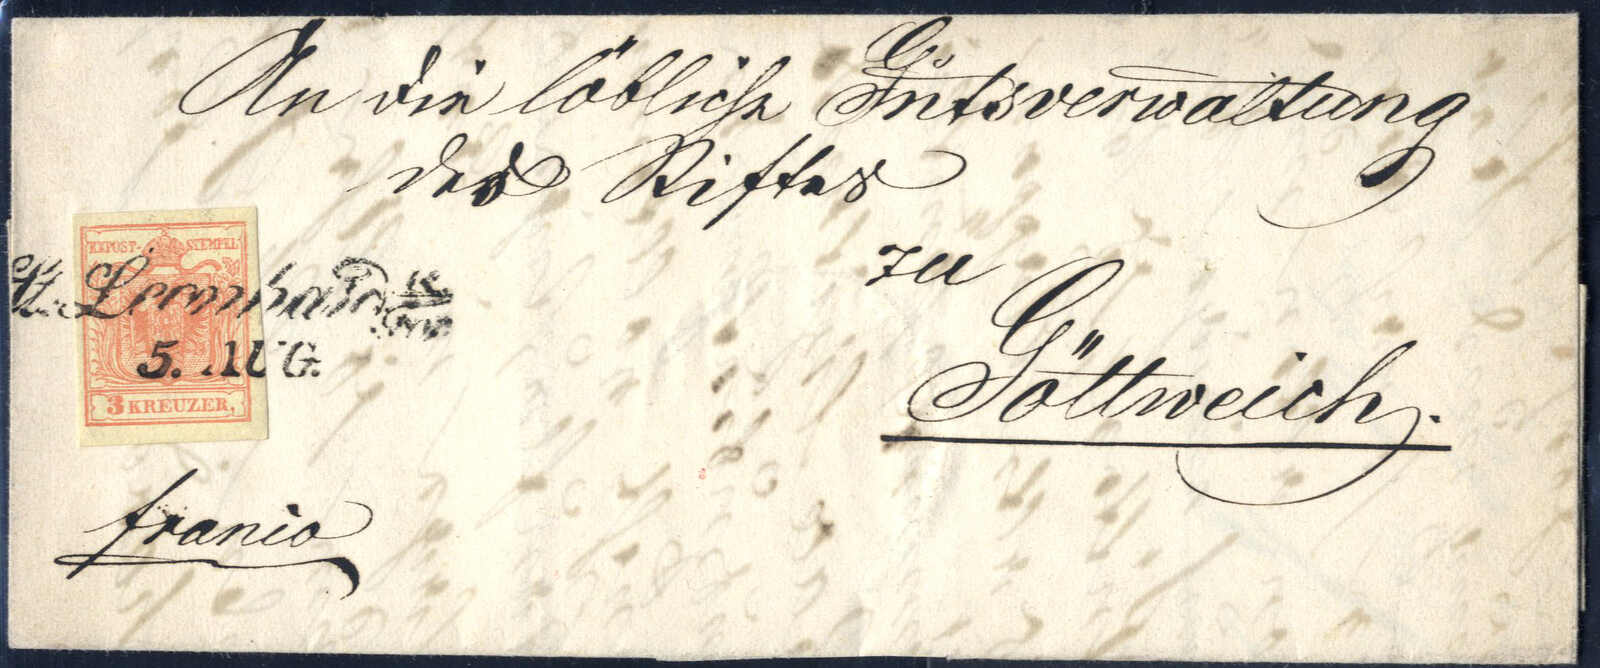 An die löbliche Gutsverwaltung
des Stiftes
zu
Göttweich.
KKPOST-STEMPEL
St. Leonhard
5. AUG.
3 KREUZER,
franco